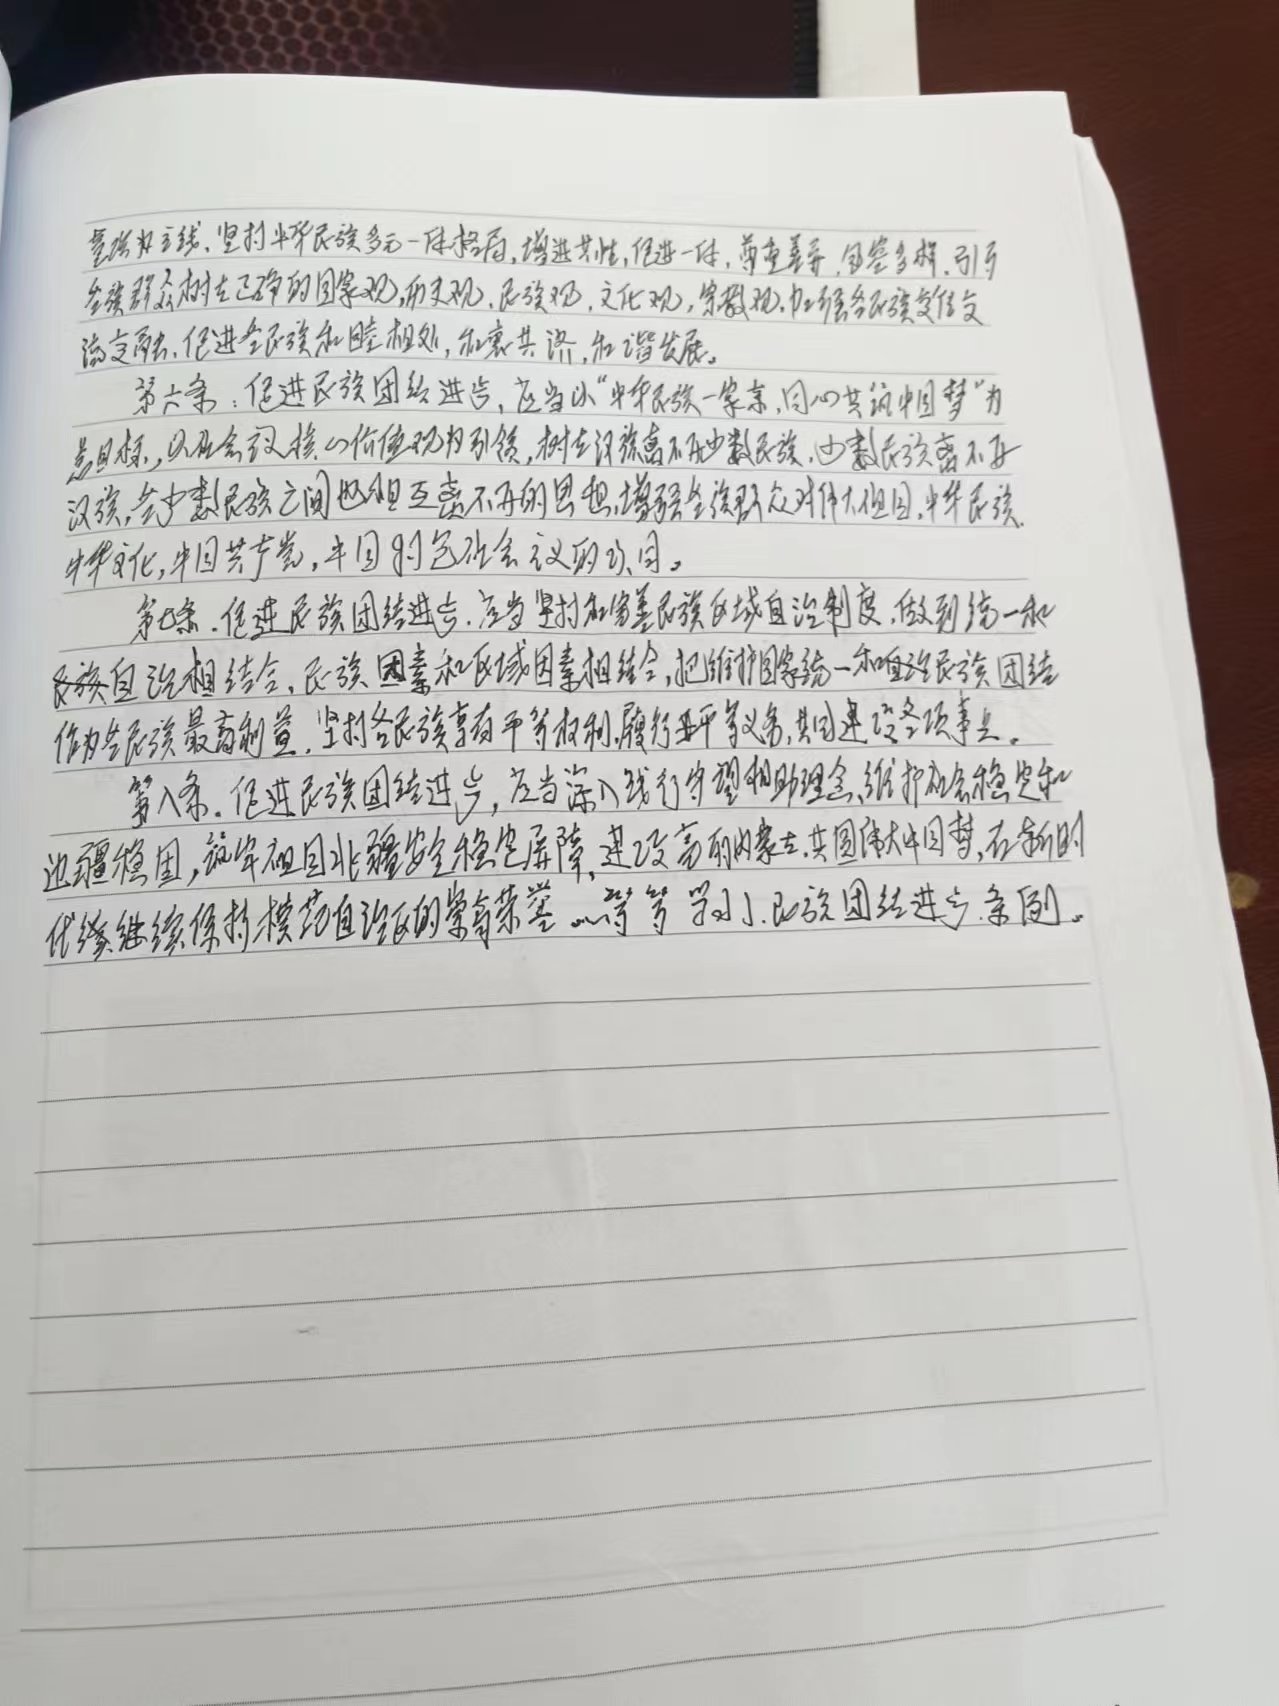 意识为主线、坚持中华民族多元一体格局,增进共性,促进一体,尊重差异,包容多样,引导
各族群众树立正确的国家观,历史观、民族观、文化观,宗教观,加强各民族交往交
流交融、促进各民族和睦相处,和衷共济,和谐发展。
第六条:促进民族团结进步,应当以“中华民族一家亲,同心共筑中国梦”为
总目标,以社会主义核心价值观为引领,树立汉族离不开少数民族、少数民族离不开
汉族,各少数民族之间也相互离不开的思想,增强各族群众对伟大祖国,中华民族、
中华文化,中国共产党,中国特色社会主义的认同。
第七条.促进民族团结进步.应当坚持和完善民族区域自治制度,做到统一和
民族自治相结合,民族因素和区域因素相结合,把维护国家统一和自治民族团结
作为各民族最高利益,坚持各民族享有平等权利,履行平等义务,共同建设各项事业。
第八条.促进民族团结进步,应当深入践行守望相助理念,维护社会稳定和
边疆稳固,筑牢祖国北疆安全稳定屏障,建设亮丽内蒙古,共圆伟大中国梦,在新时
代继续保持模范自治区的崇高荣誉…等等 学习.民族团结进步.条例。